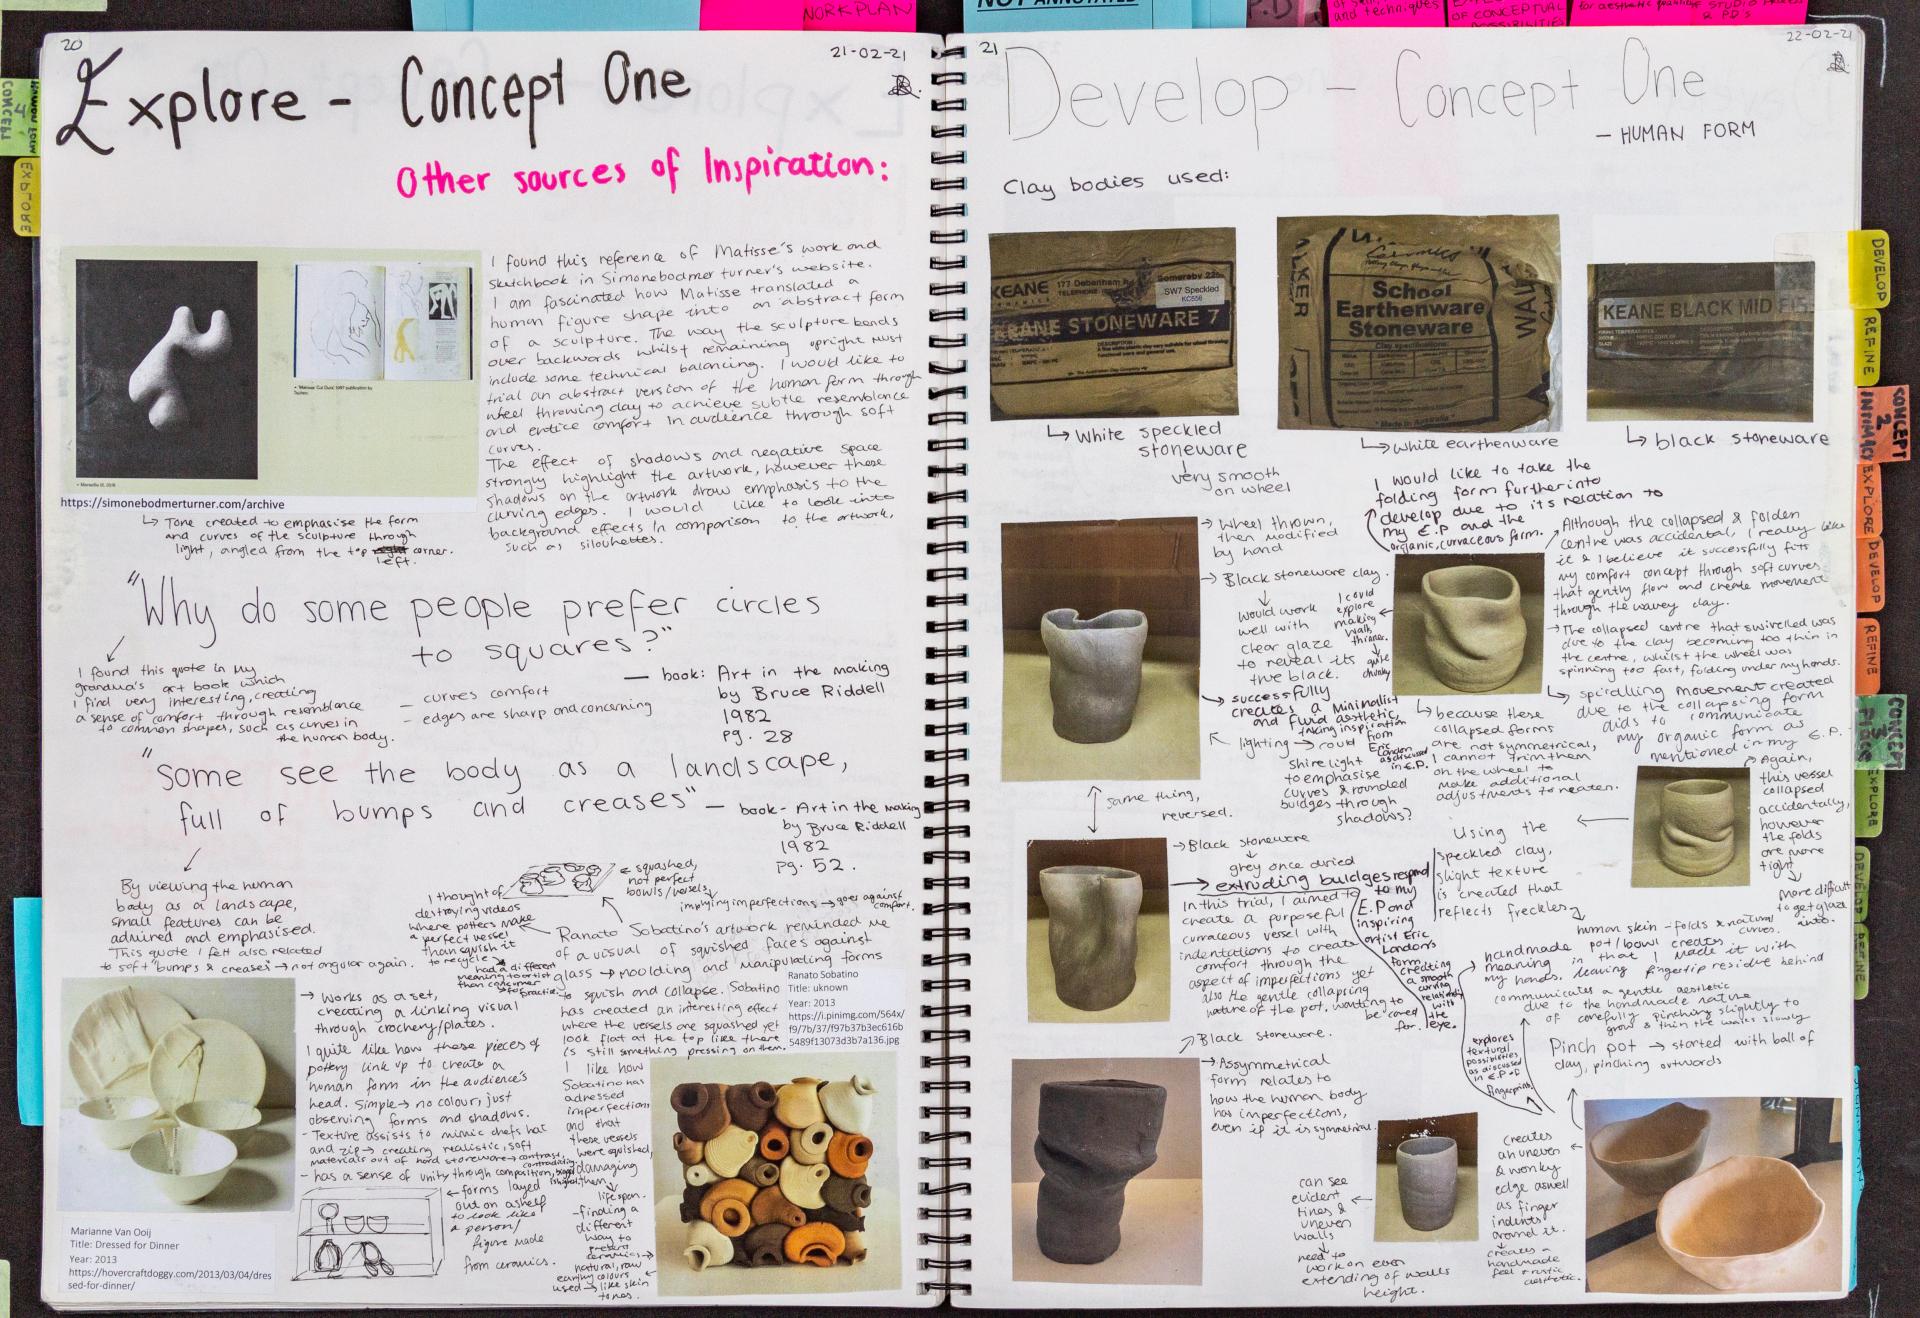 WORKPLAN
NOT ANNOTATED
P.D
and techniques
OF CONCEPTUAL
POSSIBILITIES
& PD's
20
21-02-21
Explore - Concept One
Other sources of Inspiration:
I found this reference of Matisse's work and
sketchbook in Simonebodmer turner's website.
I am fascinated how Matisse translated a
human figure shape into an abstract form
of a sculpture. The way the sculpture bends
over backwards whilst remaining upright must
include some technical balancing. I would like to
trial an abstract version of the human form through
wheel throwing clay to achieve subtle resemblance
and entice comfort in audience through soft
curves.
The effect of shadows and negative space
strongly highlight the artwork, however these
shadows on the artwork draw emphasis to the
curving edges. I would like to look into
background effects in comparison to the artwork,
such as silouhettes.
https://simonebodmerturner.com/archive
Tone created to emphasise the form
and curves of the sculpture through
light, angled from the top right corner.
left.
"Why do some people prefer circles
to squares?"
— book: Art in the making
by Bruce Riddell
1982
pg. 28
I found this quote in my
grandma's art book which
I find very interesting, creating
a sense of comfort through resemblance
to common shapes, such as curves in
the human body.
- curves comfort
- edges are sharp and concerning
"Some see the body as a landscape,
full of bumps and creases"
— book - Art in the making
by Bruce Riddell
1982
pg. 52.
By viewing the human
body as a landscape,
small features can be
admired and emphasised.
This quote I felt also related
to soft "bumps & creases" → not angular again.
I thought of
destroying videos
where potters make
a perfect vessel
than squish it
to recycle
had a different
meaning to artist
than consumer
← squashed,
not perfect
bowls/vessels,
implying imperfections → goes against
comfort.
Ranato Sobatino's artwork reminded me
of a visual of squished faces against
glass → moulding and manipulating forms
to squish and collapse. Sobatino
has created an interesting effect
where the vessels are squashed yet
look flat at the top like there
is still something pressing on them.
Ranato Sobatino
Title: uknown
Year: 2013
https://i.pinimg.com/564x/
f9/7b/37/f97b37b3ec616b
5489f13073d3b7a136.jpg
→ Works as a set,
creating a linking visual
through crochery/plates.
I quite like how these pieces of
pottery link up to create a
human form in the audience's
head. Simple → no colour, just
observing forms and shadows.
- Texture assists to mimic chefs hat
and zip → creating realistic, soft
materials out of hard stoneware → contrast,
contradicting
- has a sense of unity through composition,
← forms layed
out on a shelf
to look like
a person/
figure made
from ceramics.
I like how
Sobatino has
adressed
imperfections
and that
these vessels
were squished,
damaging
them
life span.
- finding a
different
way to
present
ceramics
natural, raw
earthy colours
used → like skin
tones.
Marianne Van Ooij
Title: Dressed for Dinner
Year: 2013
https://hovercraftdoggy.com/2013/03/04/dres
sed-for-dinner/
EXPLORE
21
22-02-21
Develop - Concept One
- HUMAN FORM
Clay bodies used:
KEANE
177 Debenham Rd
Somersby 225
TELEPHONE
SW7 Speckled
KC556
KEANE STONEWARE 7
DESCRIPTION:
Ceramics
WALKER
School
Earthenware
Stoneware
Clay specifications:
Made in Australia
KEANE BLACK MID F15
White speckled
stoneware
very smooth
on wheel
white earthenware
black stoneware
I would like to take the
folding form further into
develop due to its relation to
my E.P and the
organic, curvaceous form.
→ Wheel thrown,
then modified
by hand
→ Black stoneware clay.
Would work
well with
clear glaze
to reveal its
true black.
I could
explore
making
walls
thinner.
quite
chunky
→ successfully
creates a minimalist
and fluid aesthetic,
taking inspiration
from
Eric
Landon
as discussed
in E.P.
lighting → could
shine light
to emphasise
curves & rounded
buldges through
shadows?
Although the collapsed & folden
centre was accidental, I really like
it & I believe it successfully fits
my comfort concept through soft curves
that gently flow and create movement
through the wavey clay.
→ The collapsed centre that swirelled was
due to the clay becoming too thin in
the centre, whilst the wheel was
spinning too fast, folding under my hands.
spiralling movement created
due to the collapsing form
aids to communicate
my organic form as
mentioned in my E.P.
because these
collapsed forms
are not symmetrical,
I cannot trim them
on the wheel to
make additional
adjustments to neaten.
Again,
this vessel
collapsed
accidentally,
however
the folds
are more
tight
more difficult
to get glaze
into.
same thing,
reversed.
→ Black stoneware
grey once dried
→ extruding buldges respond
to my
E.P and
inspiring
artist Eric
Landon's
form,
creating
a smooth
curving
relationship
with
the
eye.
In this trial, I aimed to
create a purposeful
curvaceous vessel with
indentations to create
comfort through the
aspect of imperfections yet
also the gentle collapsing
nature of the pot, wanting to
be cared
for.
Using the
speckled clay,
slight texture
is created that
reflects freckles
human skin - folds & natural
curves.
handmade pot/bowl creates
meaning in that I made it with
my hands. leaving fingertip residue behind
communicates a gentle aesthetic
due to the handmade nature
of carefully pinching slightly to
grow & thin the walls slowly
Pinch pot → started with ball of
clay, pinching outwards
explores
textural
possibilities
as discussed
in E.P of
fingerprints
Black stoneware.
→ Assymetrical
form relates to
how the human body
has imperfections,
even if it is symmetrical.
can see
evident
lines &
uneven
walls
need to
work on even
extending of walls
height.
creates
an uneven
& wonky
edge aswell
as finger
indents
around it.
creates a
handmade
feel & rustic
aesthetic.
DEVELOP
REFINE
CONCEPT
2
INTIMACY
EXPLORE
DEVELOP
REFINE
CONCEPT
3
EXPLORE
DEVELOP
REFINE